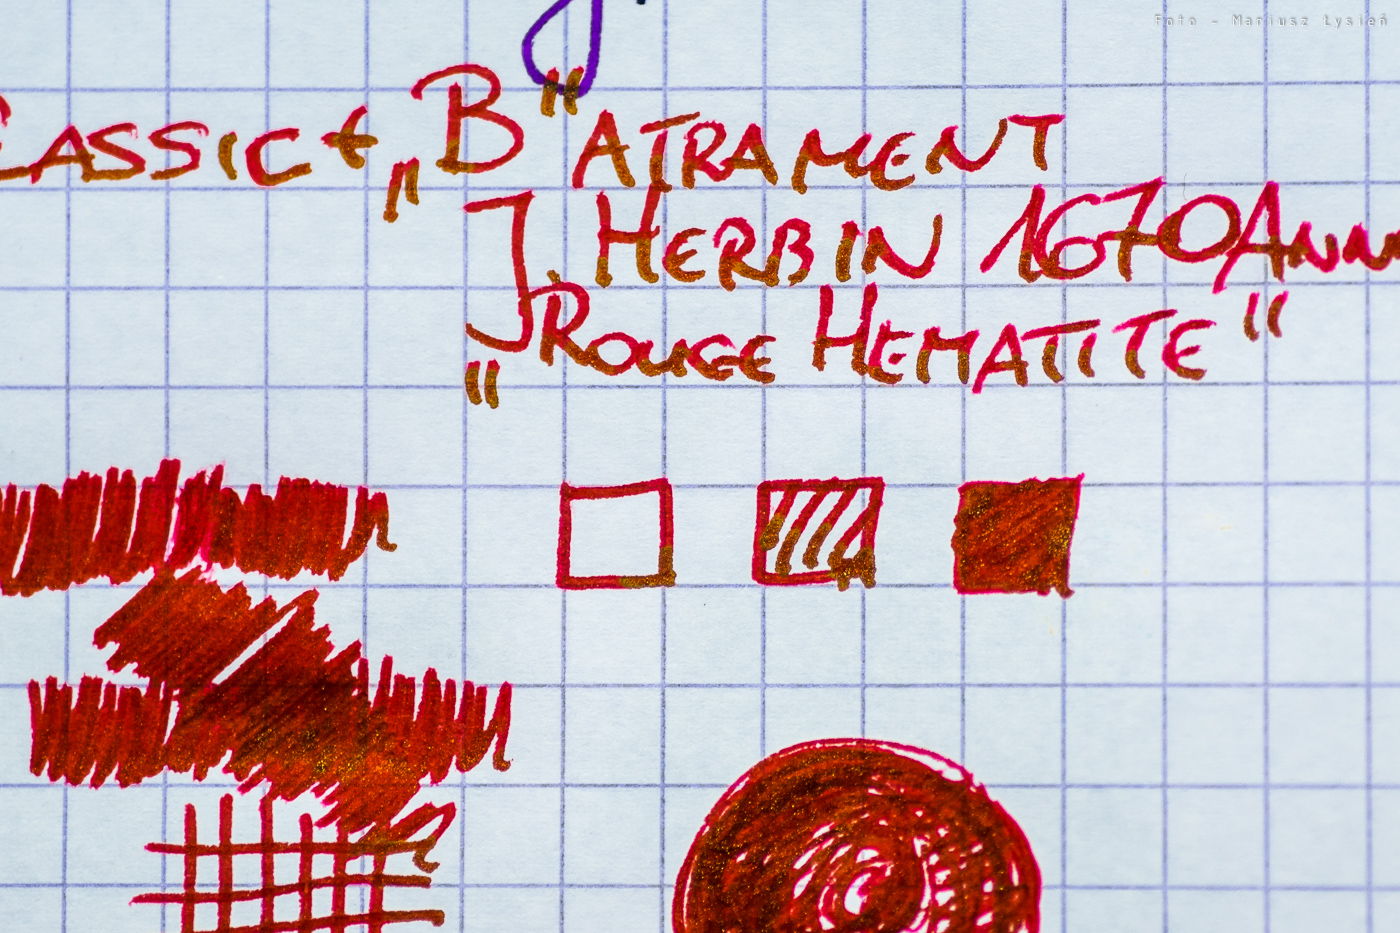 Foto - Mariusz Łysień
LASSIC + „B" ATRAMENT
J. HERBIN 1670 ANN
„ROUGE HEMATITE"